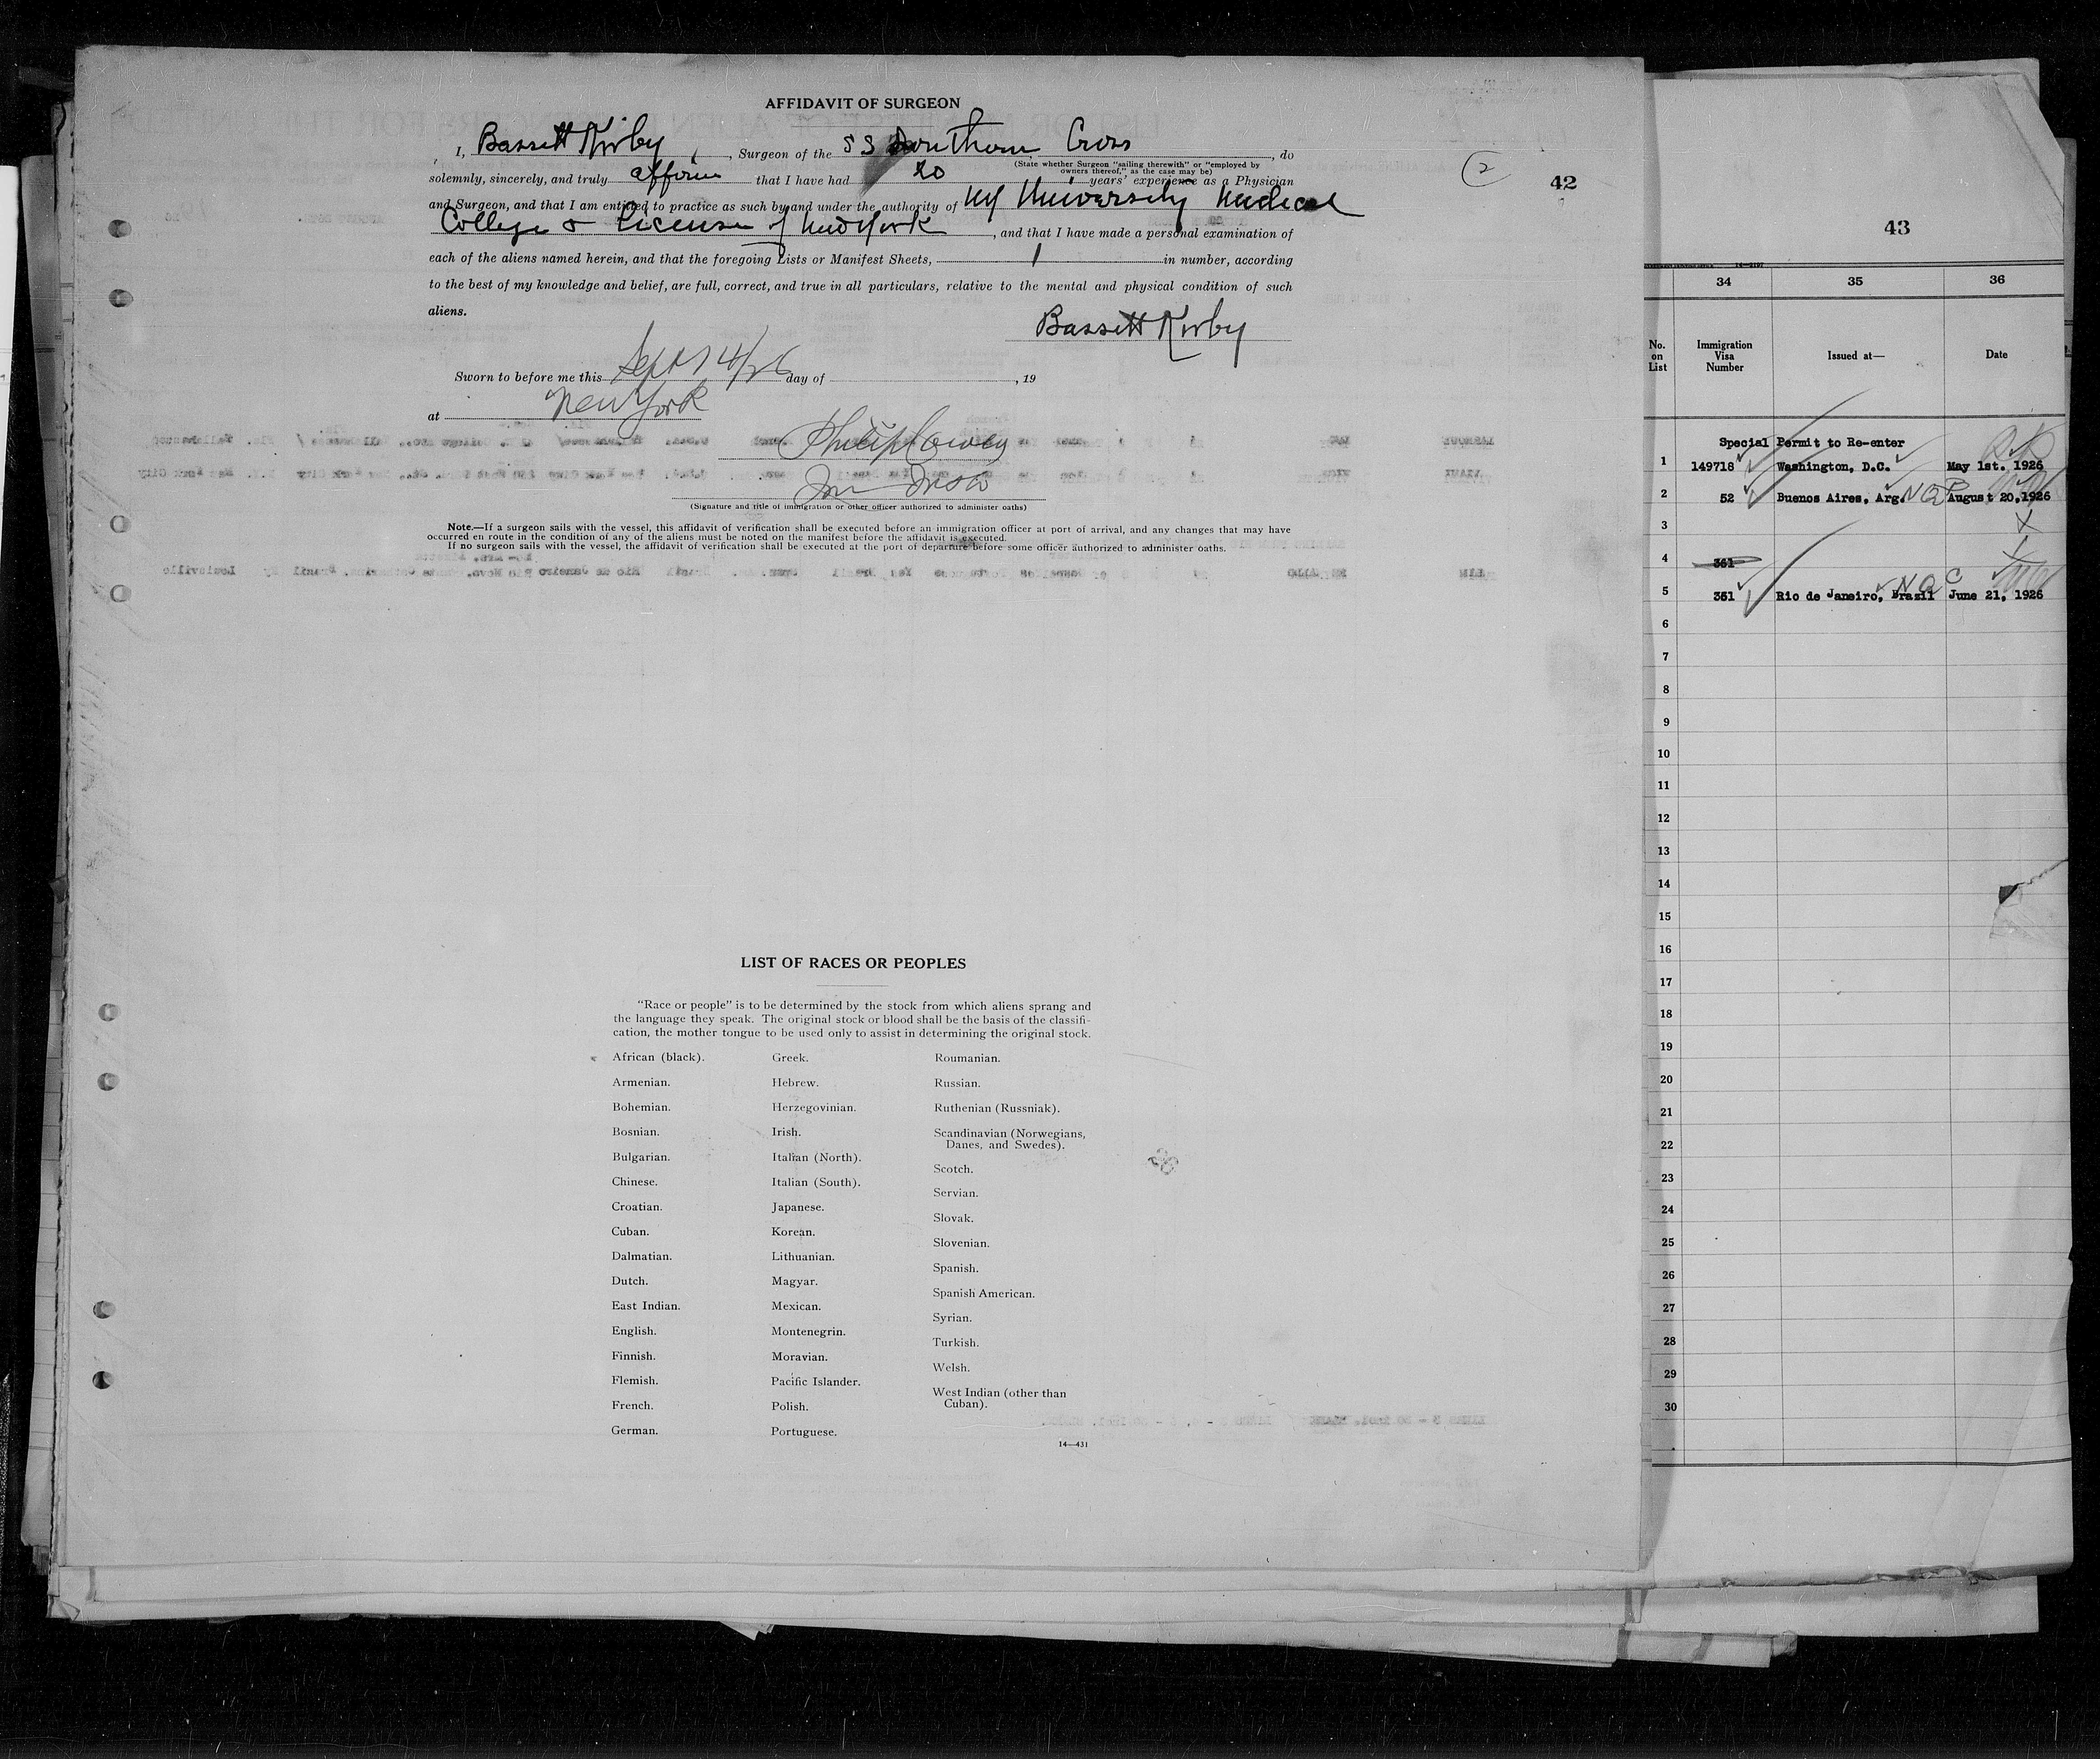 AFFIDAVIT OF SURGEON
I, Bassett Kirby, Surgeon of the SS Southern Cross, do
(State whether Surgeon "sailing therewith" or "employed by
owners thereof," as the case may be)
solemnly, sincerely, and truly affirm that I have had 20 years' experience as a Physician
and Surgeon, and that I am entitled to practice as such by and under the authority of NY University Medical
College & License of New York, and that I have made a personal examination of
each of the aliens named herein, and that the foregoing Lists or Manifest Sheets, 1 in number, according
to the best of my knowledge and belief, are full, correct, and true in all particulars, relative to the mental and physical condition of such
aliens.
Bassett Kirby
Sworn to before me this Sept 14/26 day of , 19
at New York
(Signature and title of immigration or other officer authorized to administer oaths)
Note.—If a surgeon sails with the vessel, this affidavit of verification shall be executed before an immigration officer at port of arrival, and any changes that may have
occurred en route in the condition of any of the aliens must be noted on the manifest before the affidavit is executed.
If no surgeon sails with the vessel, the affidavit of verification shall be executed at the port of departure before some officer authorized to administer oaths.
2
42
LIST OF RACES OR PEOPLES
"Race or people" is to be determined by the stock from which aliens sprang and
the language they speak. The original stock or blood shall be the basis of the classifi-
cation, the mother tongue to be used only to assist in determining the original stock.
African (black).
Armenian.
Bohemian.
Bosnian.
Bulgarian.
Chinese.
Croatian.
Cuban.
Dalmatian.
Dutch.
East Indian.
English.
Finnish.
Flemish.
French.
German.
Greek.
Hebrew.
Herzegovinian.
Irish.
Italian (North).
Italian (South).
Japanese.
Korean.
Lithuanian.
Magyar.
Mexican.
Montenegrin.
Moravian.
Pacific Islander.
Polish.
Portuguese.
Roumanian.
Russian.
Ruthenian (Russniak).
Scandinavian (Norwegians,
Danes, and Swedes).
Scotch.
Servian.
Slovak.
Slovenian.
Spanish.
Spanish American.
Syrian.
Turkish.
Welsh.
West Indian (other than
Cuban).
14—431
43
34 35 36
No. on List Immigration Visa Number Issued at— Date
Special Permit to Re-enter
1 149718 Washington, D.C. May 1st. 1926
2 52 Buenos Aires, Arg. NQ August 20, 1926
3
4 351
5 351 Rio de Janeiro, Brazil NQ June 21, 1926
6
7
8
9
10
11
12
13
14
15
16
17
18
19
20
21
22
23
24
25
26
27
28
29
30